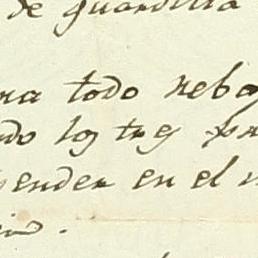 de guardilla
na todo reba
do los tres pr
ender en el